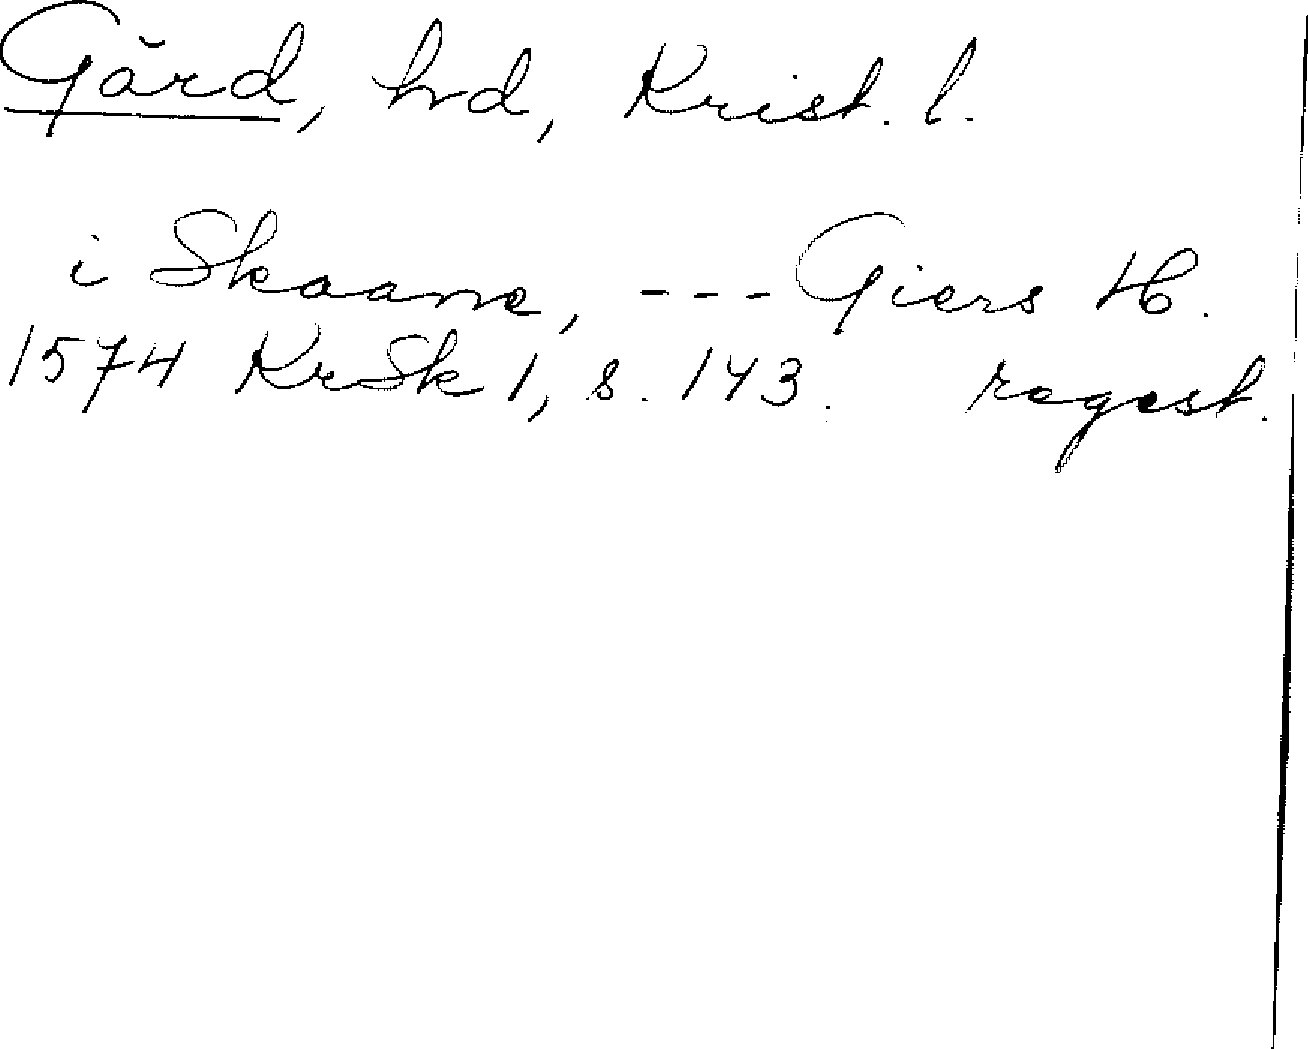 Gärd, hrd, Krist. l.
i Skaane, --- Giers H.
1574 KrSk 1, s. 143. regest.